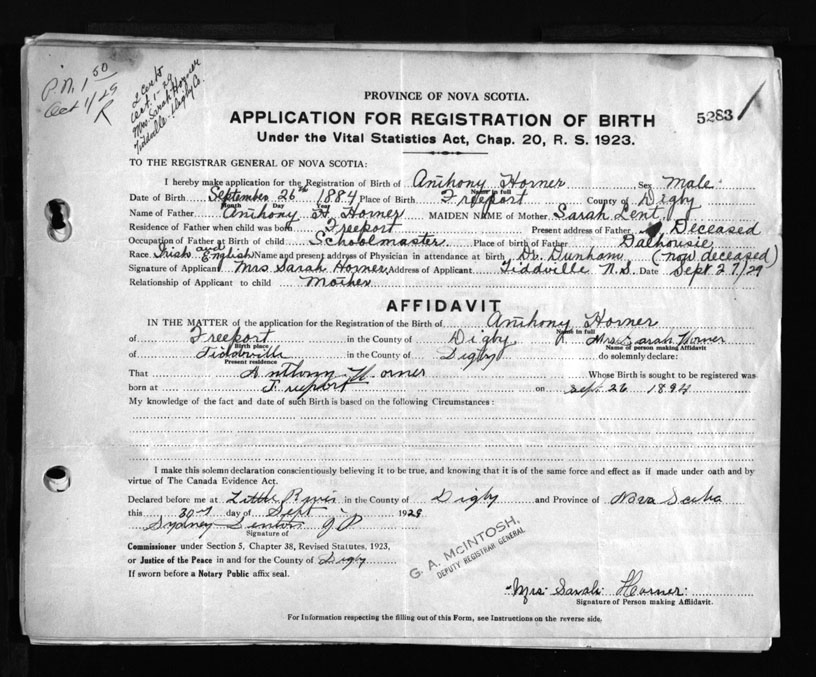 P.N. 1 50
Oct 1/29
R
2 Certs
Oct. 1-29
Mrs Sarah Horner
Tiddville Digby Co.
PROVINCE OF NOVA SCOTIA.
APPLICATION FOR REGISTRATION OF BIRTH
5283
Under the Vital Statistics Act, Chap. 20, R. S. 1923.
TO THE REGISTRAR GENERAL OF NOVA SCOTIA:
I hereby make application for the Registration of Birth of Anthony Horner Sex Male
Name in full
Date of Birth September 26th 1884 Place of Birth Freeport County of Digby
Month Day Year
Name of Father Anthony H. Horner MAIDEN NAME of Mother Sarah Lent
Residence of Father when child was born Freeport Present address of Father Deceased
Occupation of Father at Birth of child Schoolmaster Place of birth of Father Dalhousie
Race Irish and English Name and present address of Physician in attendance at birth Dr. Dunham (now deceased)
Signature of Applicant Mrs Sarah Horner Address of Applicant Tiddville N.S. Date Sept 27/29
Relationship of Applicant to child Mother
AFFIDAVIT
IN THE MATTER of the application for the Registration of the Birth of Anthony Horner
Name in full
of Freeport in the County of Digby Mrs Sarah Horner
Birth place Name of person making Affidavit
of Tiddville in the County of Digby do solemnly declare:
Present residence
That Anthony Horner Whose Birth is sought to be registered was
born at Freeport on Sept. 26 1884
My knowledge of the fact and date of such Birth is based on the following Circumstances:
I make this solemn declaration conscientiously believing it to be true, and knowing that it is of the same force and effect as if made under oath and by
virtue of The Canada Evidence Act.
Declared before me at Little River in the County of Digby and Province of Nova Scotia
this 30 day of Sept 1929
Sydney Denton J P
Signature of
Commissioner under Section 5, Chapter 38, Revised Statutes, 1923,
or Justice of the Peace in and for the County of Digby
If sworn before a Notary Public affix seal.
G. A. McINTOSH,
DEPUTY REGISTRAR GENERAL
Mrs. Sarah Horner
Signature of Person making Affidavit.
For Information respecting the filling out of this Form, see Instructions on the reverse side.